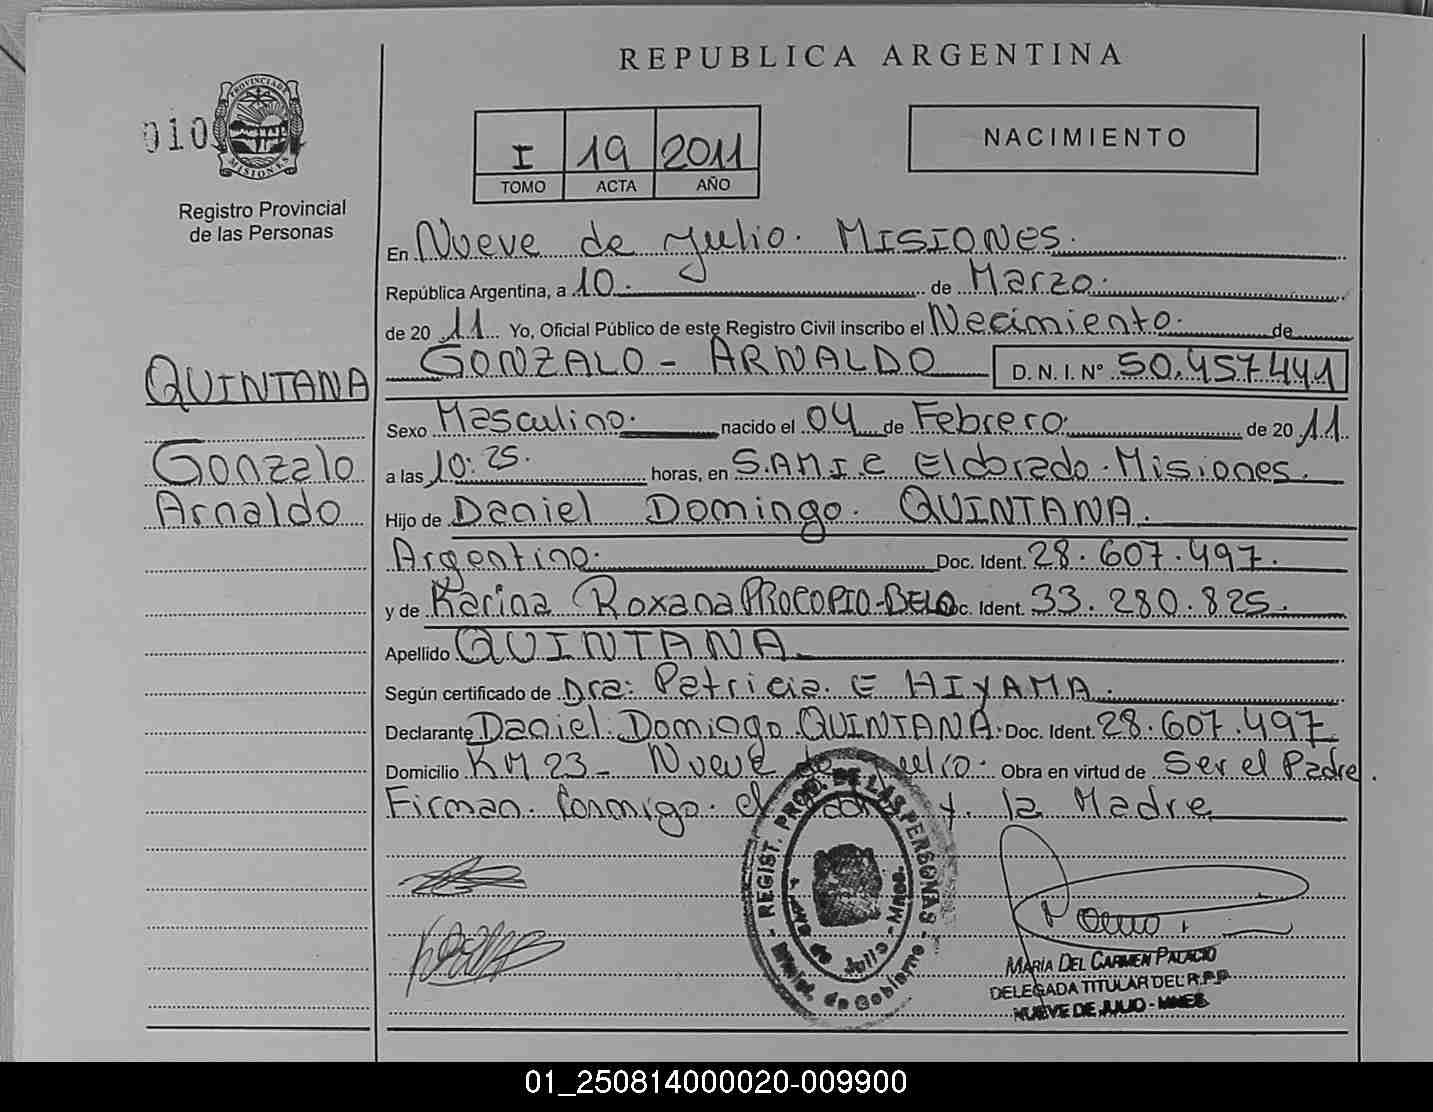 REPUBLICA ARGENTINA
010
PROVINCIA DE
MISIONES
Registro Provincial
de las Personas
I 19 2011
TOMO ACTA AÑO
NACIMIENTO
En Nueve de Julio. MISIONES.
República Argentina, a 10. de Marzo.
de 20 11 Yo, Oficial Público de este Registro Civil inscribo el Necimiento. de
GONZALO - ARNALDO D.N.I.Nº 50.457.441
QUINTANA
Gonzalo
Arnaldo
Sexo Masculino. nacido el 04 de Febrero. de 20 11.
a las 10:25. horas, en S.AMI.C Eldorado. Misiones.
Hijo de Daniel Domingo. QUINTANA.
Argentino. Doc. Ident. 28.607.497.
y de Karina Roxana PROCOPIO-BELO Doc. Ident. 33.280.825.
Apellido QUINTANA
Según certificado de Dra: Patricia. E HIYAMA.
Declarante Daniel. Domingo QUINTANA. Doc. Ident. 28.607.497
Domicilio KM 23 - Nueve de Julio. Obra en virtud de Ser el Padre.
Firman. Conmigo. el Padre y. la Madre
REGIST. PROV. DE LAS PERSONAS
9 de Julio - Mnes.
Minist. de Gobierno
MARÍA DEL CARMEN PALACIO
DELEGADA TITULAR DEL R.P.P
NUEVE DE JULIO - MNES
01_250814000020-009900